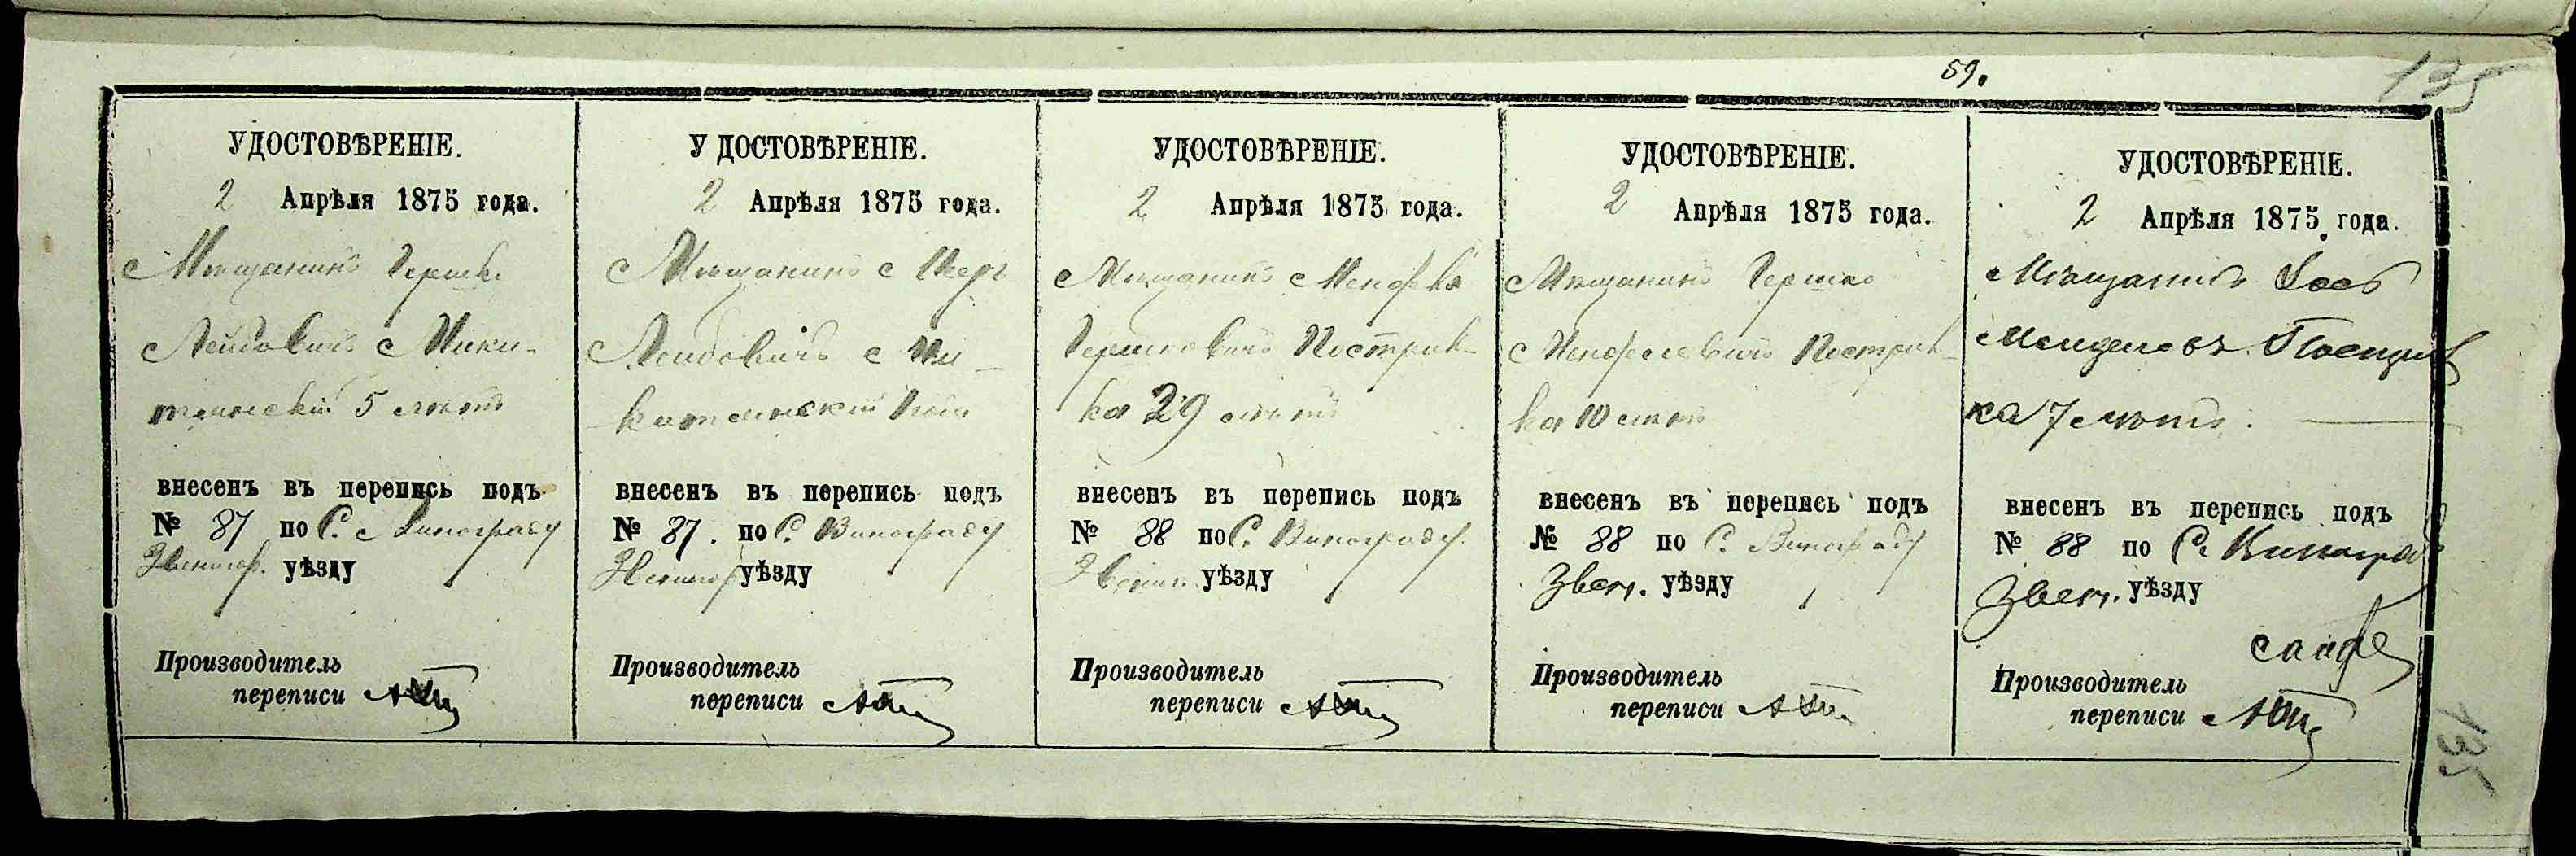 59.
135
УДОСТОВѢРЕНІЕ.
2 Апрѣля 1875 года.
Мѣщанинъ Гершко
Лейбовичъ Мики-
тинскій 5 лѣтъ
внесенъ въ перепись подъ
№ 87 по С. Винограду
Звенигор. уѣзду
Производитель
переписи
У ДОСТОВѢРЕНІЕ.
2 Апрѣля 1875 года.
Мѣщанинъ
Лейбовичъ Ми-
китинскій
внесенъ въ перепись подъ
№ 87. по С. Винограду
Звенигор. уѣзду
Производитель
переписи
УДОСТОВѢРЕНІЕ.
2 Апрѣля 1875 года.
Мѣщанинъ
Гершковичъ
ка 29 лѣтъ
внесенъ въ перепись подъ
№ 88 по С. Винограду
Звениг. уѣзду
Производитель
переписи
УДОСТОВѢРЕНІЕ.
2 Апрѣля 1875 года.
Мѣщанинъ Гершко
ка 10 лѣтъ
внесенъ въ перепись подъ
№ 88 по С. Винограду
Звен. уѣзду
Производитель
переписи
УДОСТОВѢРЕНІЕ.
2 Апрѣля 1875 года.
Мѣщанинъ
ка 7 лѣтъ.
внесенъ въ перепись подъ
№ 88 по С. Виногра
Звен. уѣзду
Производитель
переписи
135